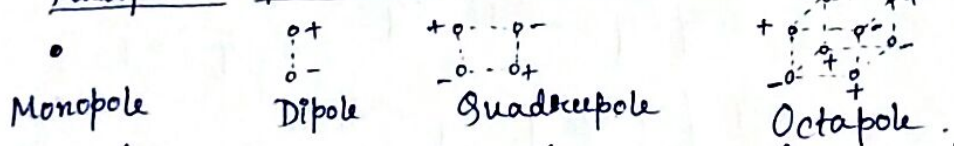 Monopole Dipole Quadrupole Octapole.